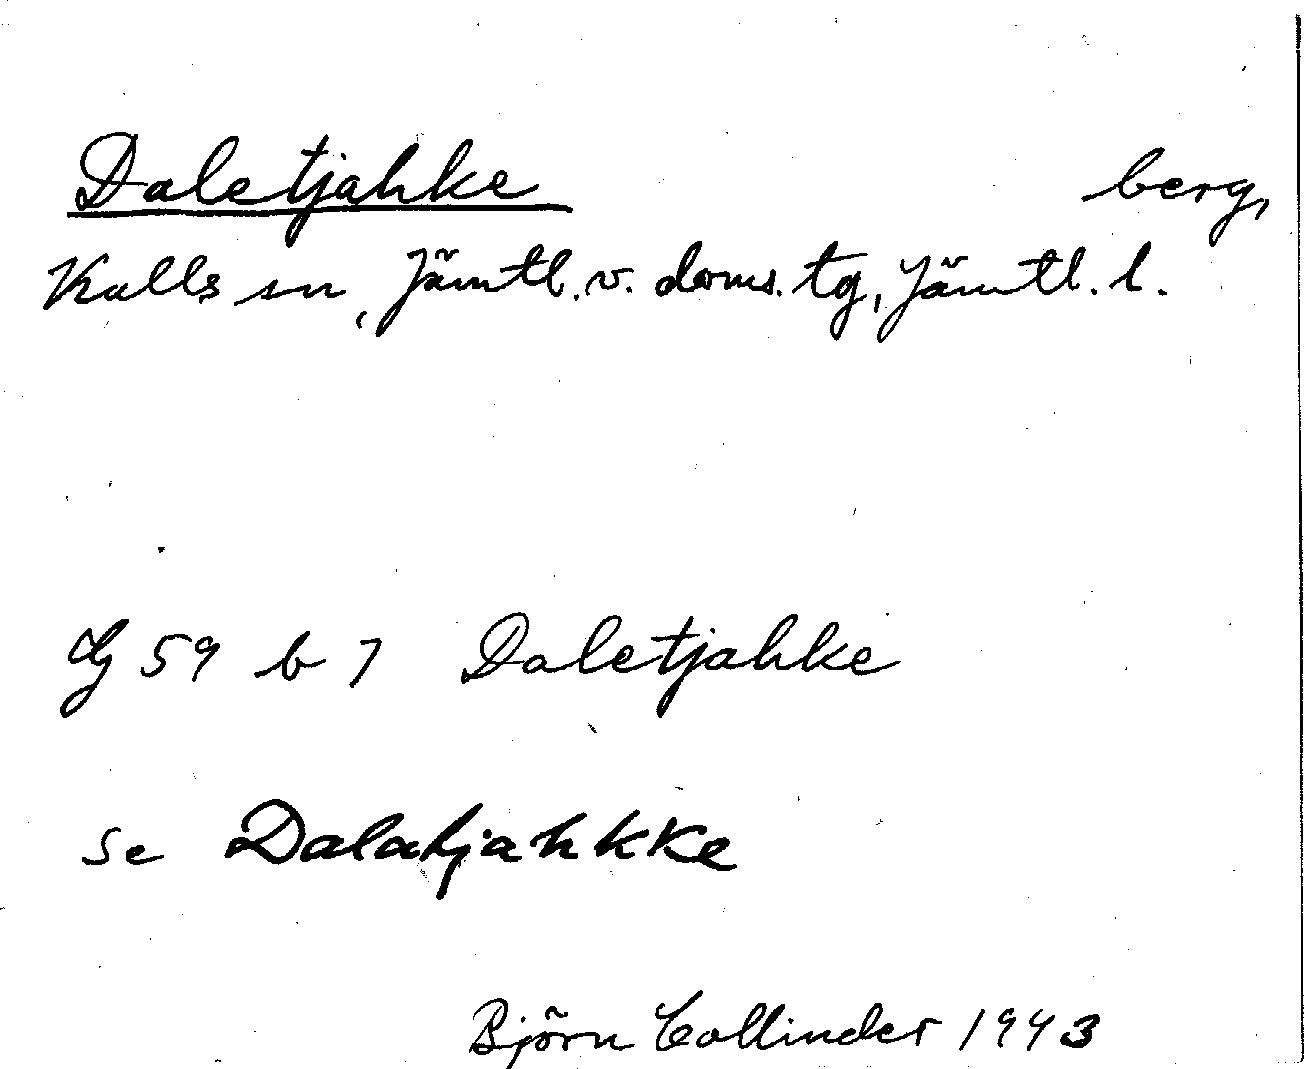 Daletjahke berg,
Kalls sn, Jämtl. v. doms. tg, Jämtl. l.
Lg 59 b 7 Daletjahke
se Dalatjahkke
Björn Collinder 1943